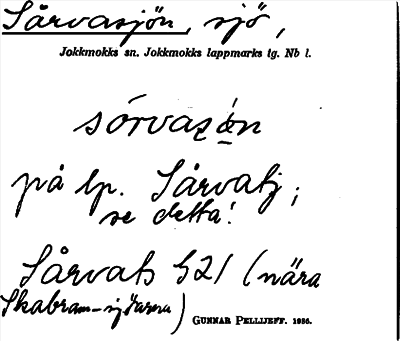 Sårvasjön, sjö,
Jokkmokks sn. Jokkmokks lappmarks tg. Nb l.
sórvazǫ́n
på lp. Sårvatj;
se detta!
Sårvats 521 (nära
Skabram-sjöarna)
GUNNAR PELLIJEFF. 1956.